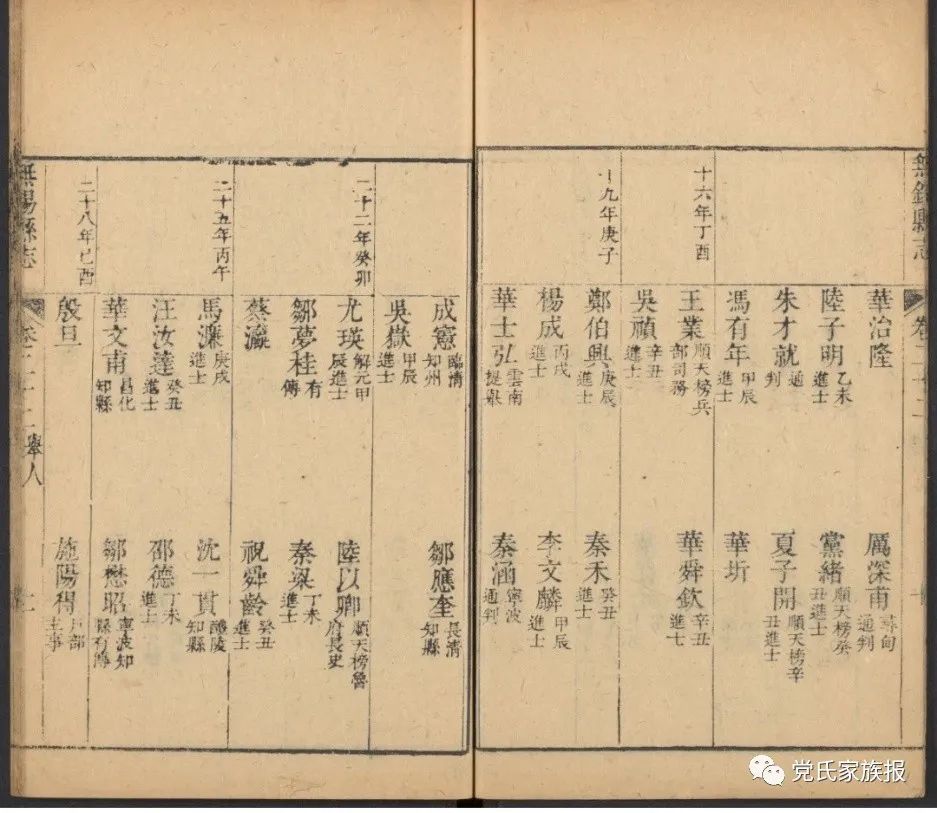 無錫縣志
卷
華治隆
厲深甫 尋甸通判
陸子明 乙未進士
黨緒 順天榜癸丑進士
朱才就 通判
夏子開 順天榜辛丑進士
馮有年 甲辰進士
華圻
十六年丁酉
王業 順天榜兵部司務
華舜欽 辛丑進士
吳禎 辛丑進士
十九年庚子
鄭伯興 庚辰進士
秦禾 癸丑進士
楊成 丙戌進士
李文麟 甲辰進士
華士弘 雲南提舉
秦涵 寧波通判
成憲 臨清知州
鄒應奎 長清知縣
吳嶽 甲辰進士
二十二年癸卯
尤瑛 解元甲辰進士
陸以卿 順天榜魯府長史
鄒夢桂 有傳
秦梁 丁未進士
蔡瀛
祝舜齡 癸丑進士
二十五年丙午
馬濂 庚戌進士
沈一貫 醴陵知縣
汪汝達 癸丑進士
邵德 丁未進士
華文甫 昌化知縣
鄒懋昭 寧波知縣有傳
二十八年己酉
殷旦
施陽得 戶部主事
無錫縣志
舉人
党氏家族报